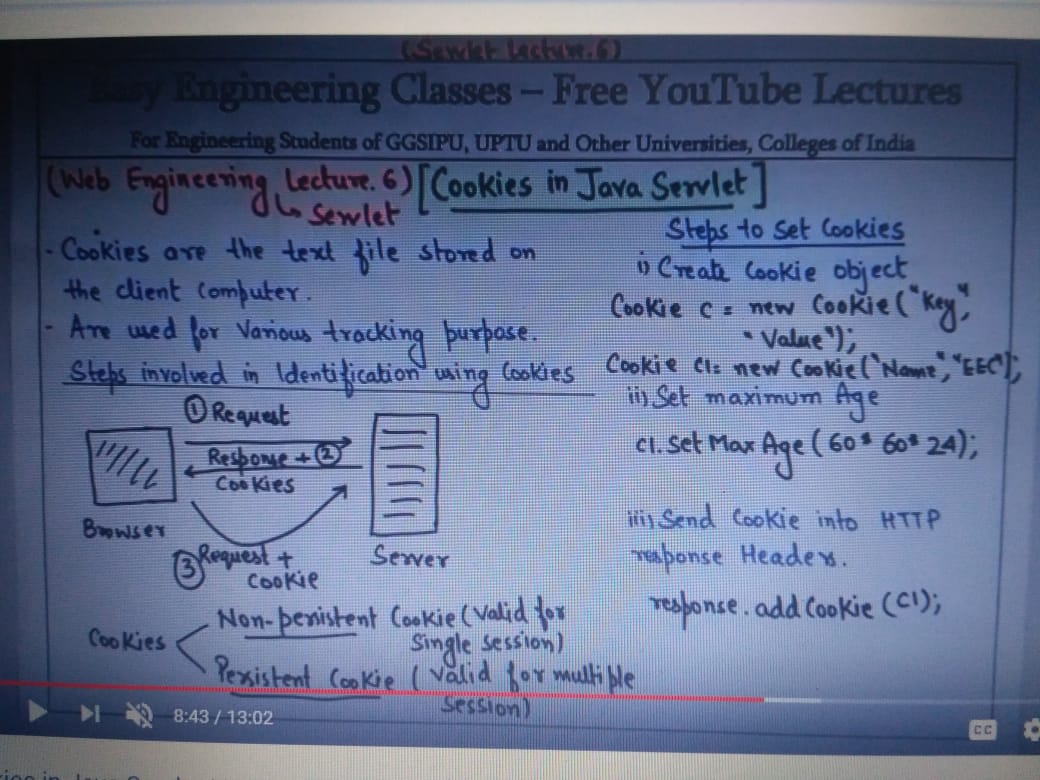 (Servlet Lecture.6)
Easy Engineering Classes – Free YouTube Lectures
For Engineering Students of GGSIPU, UPTU and Other Universities, Colleges of India
(Web Engineering Lecture. 6) [Cookies in Java Servlet]
↳ Servlet
- Cookies are the text file stored on
the client computer.
- Are used for Various tracking purpose.
Steps involved in Identification using Cookies
① Request
Response + ②
Cookies
Browser
③ Request +
Cookie
Server
Cookies
Non-persistent Cookie (Valid for
Single session)
Persistent Cookie ( Valid for multiple
Session)
Steps to Set Cookies
i) Create Cookie object
Cookie c = new Cookie("Key",
"Value");
Cookie C1= new Cookie("Name","EEC");
ii) Set maximum Age
C1.setMaxAge(60*60*24);
iii) Send Cookie into HTTP
response Headers.
response.addCookie(C1);
8:43 / 13:02
CC